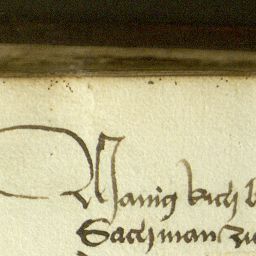 Manig buch b
Sachman zu